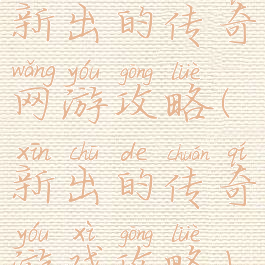 新出的传奇
wǎng yóu gōng lüè
网游攻略(
xīn chū de chuán qí
新出的传奇
yóu xì gōng lüè
游戏攻略)